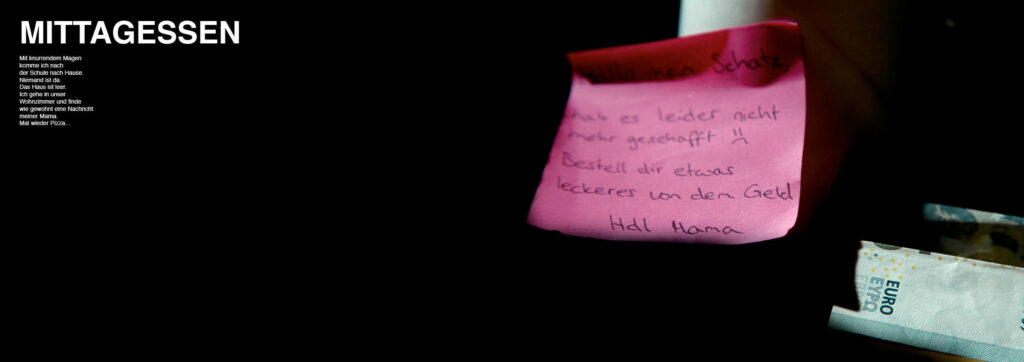 MITTAGESSEN
Mit knurrendem Magen
komme ich nach
der Schule nach Hause.
Niemand ist da.
Das Haus ist leer.
Ich gehe in unser
Wohnzimmer und finde
wie gewohnt eine Nachricht
meiner Mama.
Mal wieder Pizza...
Hallo mein Schatz,
hab es leider nicht
mehr geschafft :(
Bestell dir etwas
leckeres von dem Geld
Hdl Mama
EURO
ΕΥΡΩ